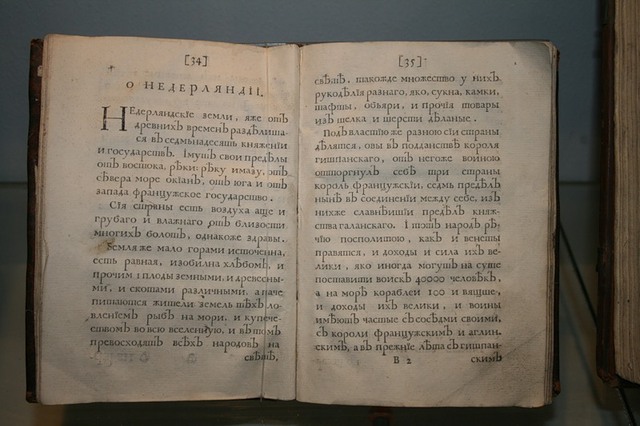 [34]
О НЕДЕРЛЯНДІИ.
НЕдерлянскіе земли, яже отъ
древнихъ временъ раздѣлиша-
ся въ седмьнадесять княженіи
и государствъ. Імутъ свои предѣлы
отъ востока, рѣки: рѣку имазу, отъ
сѣвера море окіанъ, отъ юга и отъ
запада французское государство.
Сія страны есть воздуха аще и
грубаго и влажнаго отъ близости
многихъ болотъ, однакоже здравы.
Земля же мало горами источенна,
есть равная, изобилна хлѣбомъ, и
прочим і плоды земными. и древесны-
ми, и скотами различными. а паче
питаются жители земель тѣхъ ло-
влениемъ рыбъ на мори. и купече-
ствомъ во всю вселенную, и въ томъ
превосходятъ всѣхъ народовъ на
свѣтѣ,
[35]
свѣтѣ, такожде множество у нихъ
рукоделія разнаго, яко, сукна, камки,
тафты, обьяри, и прочія товары
изъ шелка и шерсти дѣланые.
Подъ властію же разною сіи страны
дѣлятся, овы въ подданствѣ короля
гишпанскаго, отъ негоже воиною
отторгнулъ себѣ три страны
король французскіи, седмь предѣлъ
нынѣ въ соединении между себе, изъ
нихже славнѣишіи предѣлъ княж-
ства галанскаго. І тотъ народъ рѣ-
чію посполитою, какъ и венеты
правятся, и доходы и сила ихъ ве-
лики, яко иногда могутъ на суше
поставити воискъ 40000 человѣкъ,
а на морѣ кораблеи 100 и вящше,
и доходы ихъ велики, и воины
имѣютъ частые съ сосѣды своими,
съ короли французскимъ и аглин-
скимъ, а въ прежніе лѣта съ гишпан-
В 2
скимъ